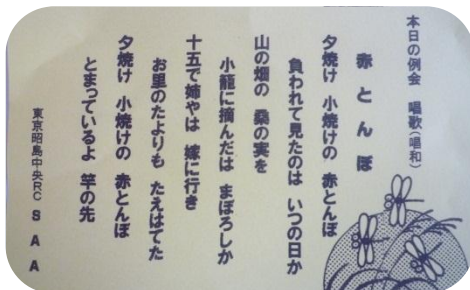 本日の例会 唱歌(唱和)
赤とんぼ
夕焼け 小焼けの 赤とんぼ
負われて見たのは いつの日か
山の畑の 桑の実を
小籠に摘んだは まぼろしか
十五で姉やは 嫁に行き
お里のたよりも たえはてた
夕焼け 小焼けの 赤とんぼ
とまっているよ 竿の先
東京昭島中央RC SAA